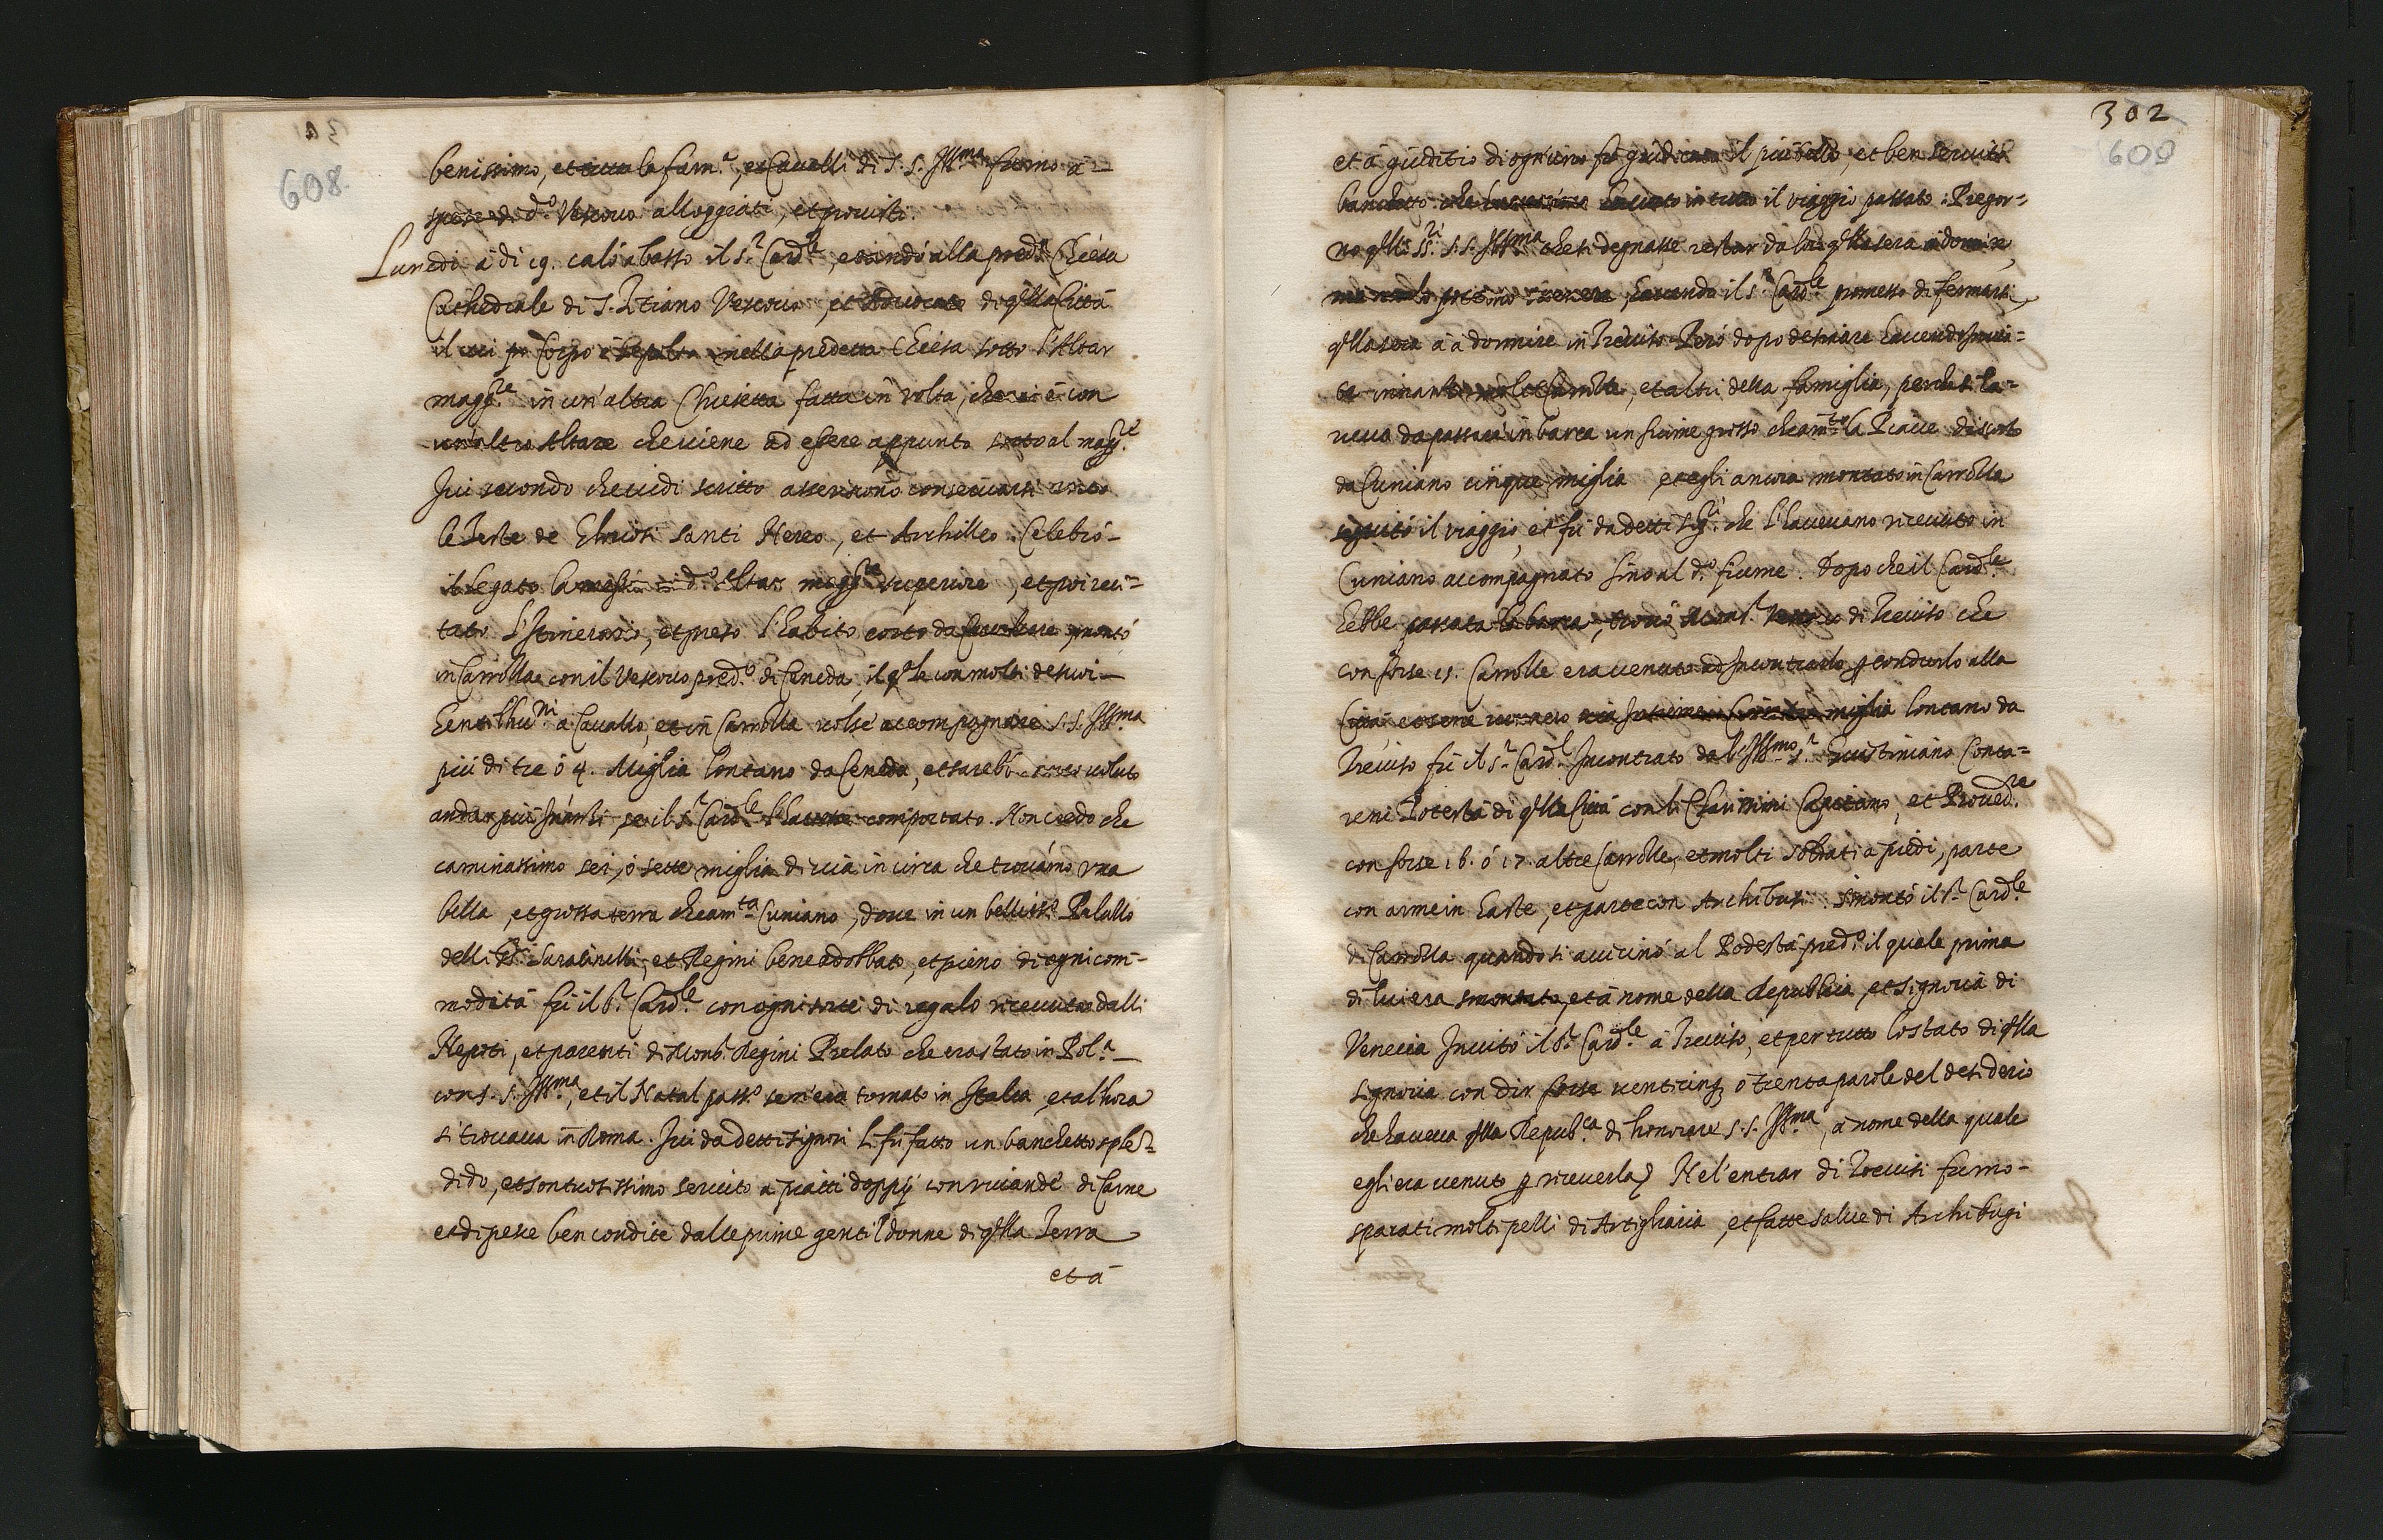 608
benissimo, et tutta la fam.ª, et Cavalli di S. S. Ill.ma furno a
spese di d.º Vescovo alloggiati, et provisti.
Lunedi à di 19. calò abasso il S.r Card.le, et andò alla pred.ª Chiesa
Cathedrale di S. Titiano Vescovo, et Advocato di q.lla Città
il cui Corpo è Sepolto nella predetta Chiesa sotto l'Altar
magg.re in un'altra Chiesetta fatta in volta, che vi è con
un'altro Altare che viene ad essere appunto sotto al magg.re
Ivi secondo che vidi scritto asseriscono conservarsi
le Teste de Santi Nereo, et Archilleo. Celebrò
il Legato la messa d.º Altar magg.re superiore, et poi reci-
tato l'Itinerario, et preso l'habito corto da montò
in Carrozza con il Vescovo pred.º di Ceneda, il q.le con molti de suoi
Gentilhu.ni à Cavallo, et in Carrozza volse accompagnare S. S. Ill.ma
più di tre ò 4. Miglia lontano da Ceneda, et sarebbe voluto
andar più inanti, se il S.r Card.le l'havesse comportato. Non credo che
caminassimo sei, ò sette miglia di via in circa che trovamo una
bella, et grossa terra chiam.ta Cuniano, dove in un belliss.º Palazzo
delli SS.ri Saracinelli, et Regini bene addobbato, et pieno di ogni com-
modità fù il S.r Card.le con ogni sorte di regalo ricevuto dalli
Nepoti, et parenti di Mons.r Regini Prelato che era stato in Pol.ª
con S. S. Ill.ma, et il Natal pass.º sen'era tornato in Italia, et alhora
si trovava in Roma. Ivi da detti signori li fù fatto un banchetto splen-
dido, et sontuosissimo servito a piatti doppij con vivande di Carne
et di pesce ben condite dalle prime gentildonne di q.lla Terra
et à
302
609
et à giuditio di ogn'uno fù giudicato il più bello, et ben servito
banchetto che havuto in tutto il viaggio passato. Pregor-
no q.lli SS.ri S. S. Ill.ma che si degnasse restar da loro q.lla sera à dormire,
ma non lo potero ottenere, havendo il S.r Card.le promesso di fermarsi
q.lla sera à dormire in Treviso. Però dopo desinare havendo Invia-
te inanti molte Carrozze, et altri della famiglia, perche si ha-
veva da passare in barca un fiume grosso chiam.to la Piave discosto
da Cuniano cinque miglia et egli ancora montato in Carrozza
seguitò il viaggio, et fù da detti Sig.ri che l'havevano ricevuto in
Cuniano accompagnato sino al d.º fiume. Dopo che il Card.le
hebbe passata la barca, trovò Mons.r Vescovo di Treviso che
con forse 15. Carrozze era venuto ad Incontrarlo p condurlo alla
Città, miglia lontano da
Treviso fù il S.r Card.le Incontrato da l'Ill.mo S.r Giustiniano Conta-
reni Potestà di q.lla Città con li Clarissimi Capitano, et Proved.re
con forse 16. ò 17. altre Carrozze, et molti soldati a piedi, parte
con arme in haste, et parte con Archibusi. Smontò il S.r Card.le
di Carrozza quando si avicinò al Podestà pred.º il quale prima
di lui era smontato, et à nome della Republica, et Signoria di
Venecia Invitò il S.r Card.le à Treviso, et per tutto lo stato di q.lla
signoria con dir forse venticinq, ò trenta parole del desiderio
che haveva q.lla Repub.ca di honorare S. S. Ill.ma, à nome della quale
egli era venuto p riceverla. Nel'entrar di Trevisi furno
sparati molti pezzi di Artigliaria, et fatte salve di Archibugi